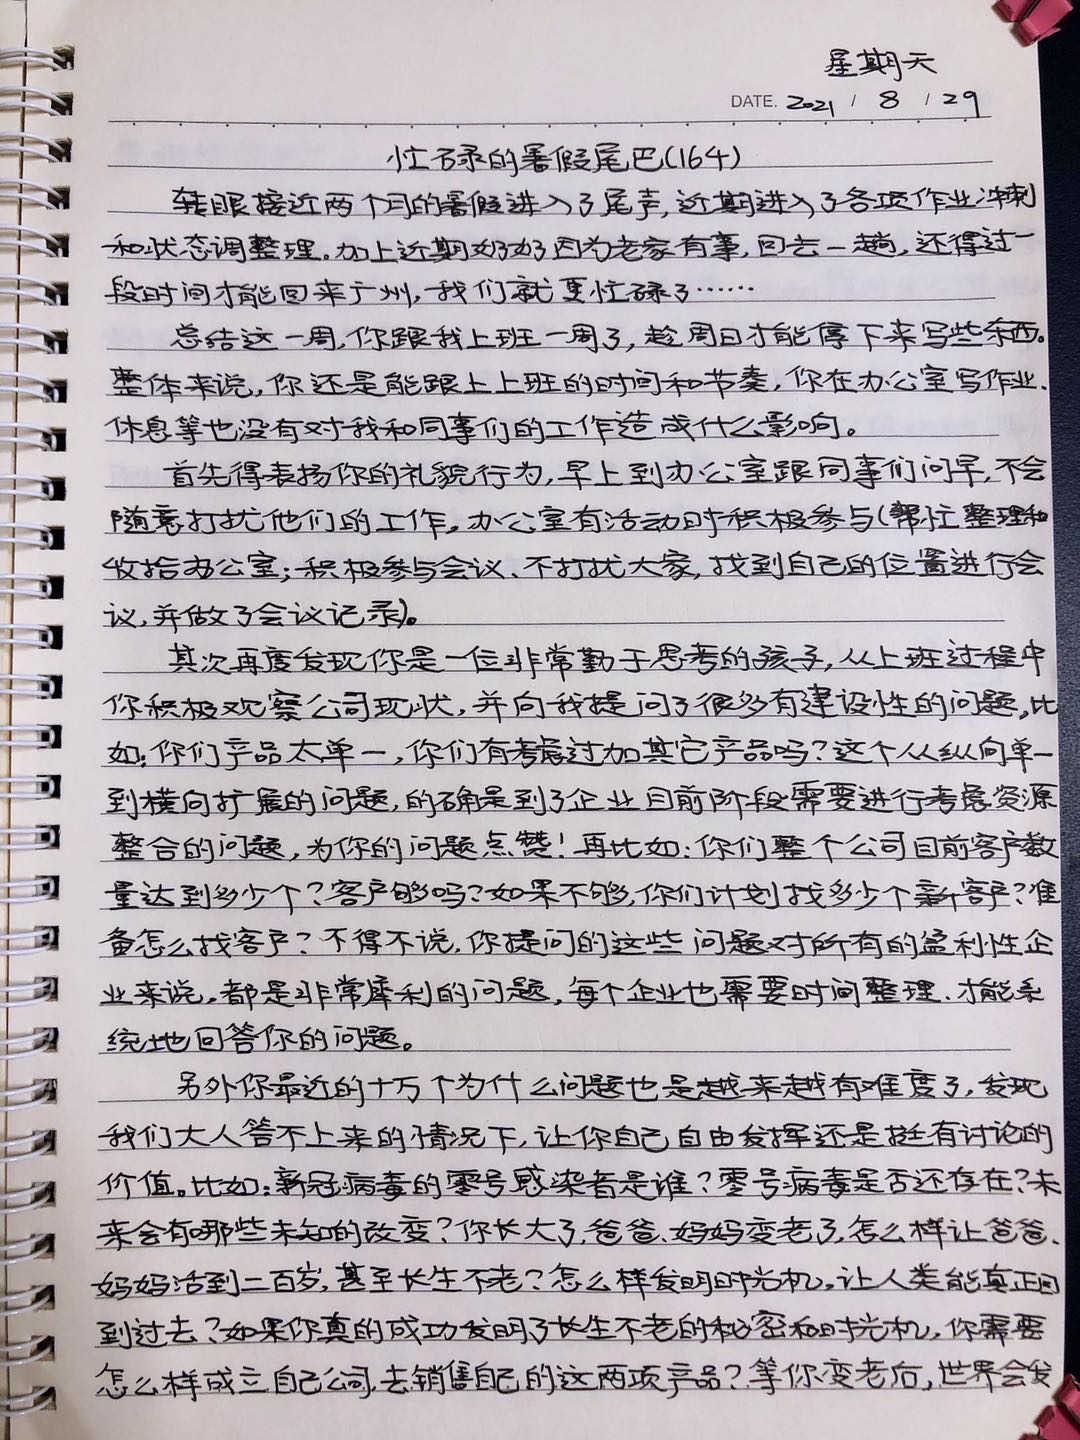 星期天
DATE. 2021 / 8 / 29
忙碌的暑假尾巴(164)
转眼接近两个月的暑假进入了尾声,近期进入了各项作业冲刺
和状态调整理。加上近期奶奶因为老家有事,回去一趟,还得过一
段时间才能回来广州,我们就更忙碌了……
总结这一周,你跟我上班一周了,趁周日才能停下来写些东西。
整体来说,你还是能跟上上班的时间和节奏,你在办公室写作业、
休息等也没有对我和同事们的工作造成什么影响。
首先得表扬你的礼貌行为,早上到办公室跟同事们问早,不会
随意打扰他们的工作。办公室有活动时积极参与(帮忙整理和
收拾办公室;积极参与会议、不打扰大家,找到自己的位置进行会
议,并做了会议记录)。
其次再度发现你是一位非常勤于思考的孩子,从上班过程中
你积极观察公司现状,并向我提问了很多有建设性的问题。比
如:你们产品太单一,你们有考虑过加其它产品吗?这个从纵向单一
到横向扩展的问题,的确是到了企业目前阶段需要进行考虑资源
整合的问题,为你的问题点赞!再比如:你们整个公司目前客户数
量达到多少个?客户够吗?如果不够,你们计划找多少个新客户?准
备怎么找客户?不得不说,你提问的这些问题对所有的盈利性企
业来说,都是非常犀利的问题,每个企业也需要时间整理、才能系
统地回答你的问题。
另外你最近的十万个为什么问题也是越来越有难度了,发现
我们大人答不上来的情况下,让你自己自由发挥还是挺有讨论的
价值。比如:新冠病毒的零号感染者是谁?零号病毒是否还存在?未
来会有哪些未知的改变?你长大了,爸爸、妈妈变老了,怎么样让爸爸、
妈妈活到二百岁,甚至长生不老?怎么样发明时光机,让人类能真正回
到过去?如果你真的成功发明了长生不老的秘密和时光机,你需要
怎么样成立自己公司,去销售自己的这两项产品?等你变老后,世界会发